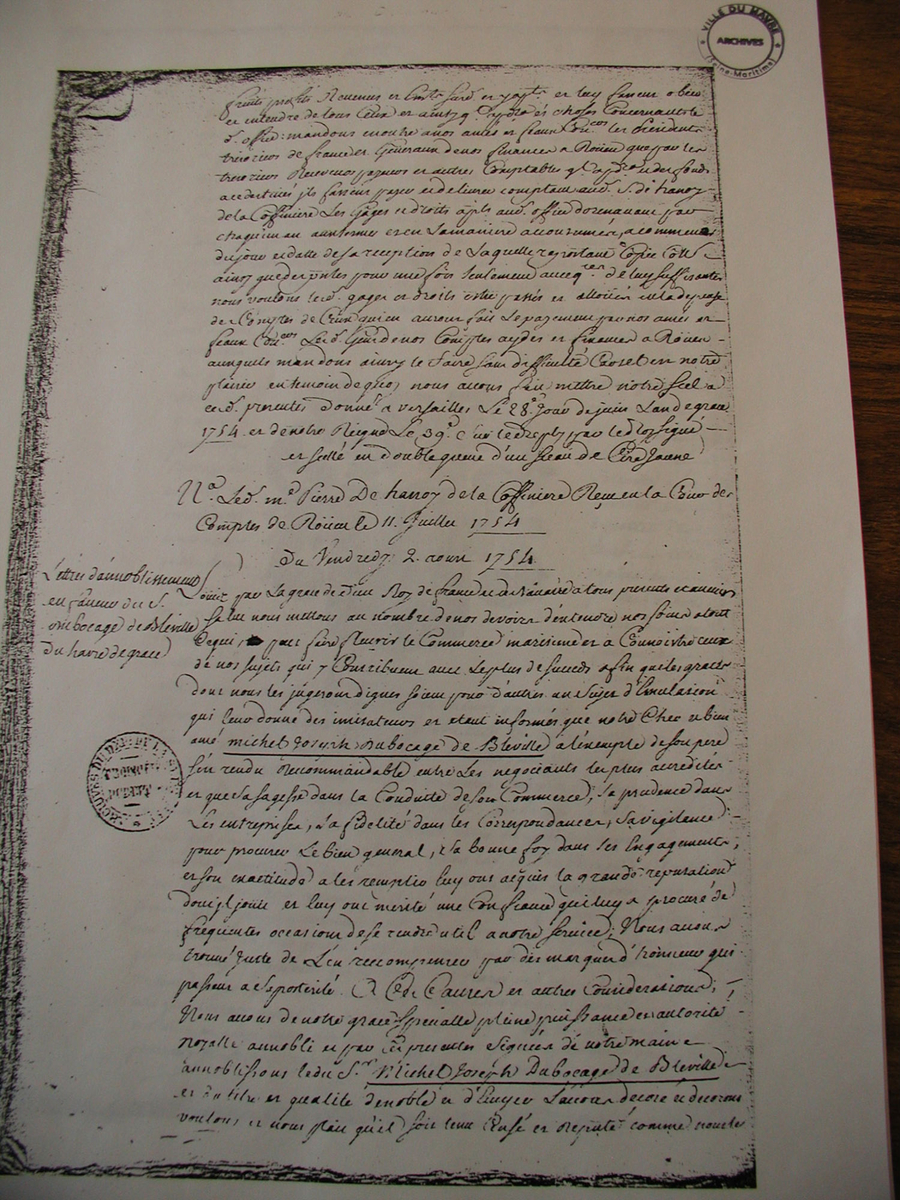 VILLE DU HAVRE
ARCHIVES
(Seine-Maritime)
fruits profits Revenus et
et entendre de tous Ceux et ainsy q'il appdra es choses Concernant led.
d. office: mandons en outre a nos amés et feaux Con.ers les presidents
tresoriers de france et Généraux de nos finances a Roüen que par les
tresoriers Receveurs payeurs et autres Comptables qu'il appdra et des fonds
a ce destinés ils fassent payer et delivrer comptant aud. S. de hanoy
de la Coffiniere Les Gages et droits aud. office dorenavant par
chaquun an aux termes et en La maniere accoutumée, a commencer
du jour et datte de sa reception de Laquelle raportant Copie Coll.
ainsy que des ptes pour une fois seulement avec de luy suffisante
nous voulons lesd. gages et droits estre passés et alloüés en la depense
des Comptes de Ceux qui en auront fait Le payement par nos amés et
feaux Con.ers Les d. Gens de nos Comptes aydes et finances a Roüen
auxquels mandons ainsy le faire sans difficulté Car tel est notre
plaisir en temoin de quoy nous avons fait mettre notre scel a
cesd. presentes Donné a versailles Le 28.e Jour de juin Lan de grace
1754 et de notre Reigne Le 39.e
et scellé en double queue d'un sceau de Cire Jaune
N.a Led. m.e Pierre De hanoy de la Coffiniere Reçu en la Cour des
Comptes de Roüen le 11. Juillet 1754
Du Vendredy 2. aoust 1754
Lettres d'annoblissement
en faveur du S.
dubocage de Bleville
du havre de grace
Louis par La grace de dieu Roy de france et de Navarre a tous presents et avenir
Salut nous mettons au nombre de nos devoirs d'entendre nos soins a tout
ce qui peut faire fleurir le Commerce maritime et a Connoitre ceux
de nos sujets qui y Contribuent avec Le plus de succés afin que les graces
dont nous les jugerons dignes soient pour d'autres un Sujet d'Emulation
qui leur donne des imitateurs et étant informés que notre Cher et bien
amé michel Joseph Dubocage de Bleville a l'exemple de son pere
s'est rendu Recommandable entre Les negociants les plus acredités
et que Sa sagesse dans la Conduite de son Commerce, Sa prudence dans
Les entreprises, sa fidelité dans les Correspondances, Sa vigilence
pour procurer Le bien general, sa bonne foy dans ses Engagements,
et son exactitude a les remplir luy ont acquis la grande reputation
dont il jouit et luy ont merité une Confiance qui luy a procuré de
frequentes occasions de se rendre util a notre service; Nous avons
trouvé juste de L'en recompenser par des marques d'honneur qui
passent a sa posterité. A Ces Causes et autres Considerations,
Nous avons de notre grace specialle pleine puissance et autorité
royalle annobli et par ces presentes Signées de notre main
annoblissons led. S.r Michel Joseph Dubocage de Bleville
et du titre et qualité de noble et d'Ecuyer L'avons decoré et decorons
voulons et nous plait qu'il soit tenu Censé et reputé comme nous le